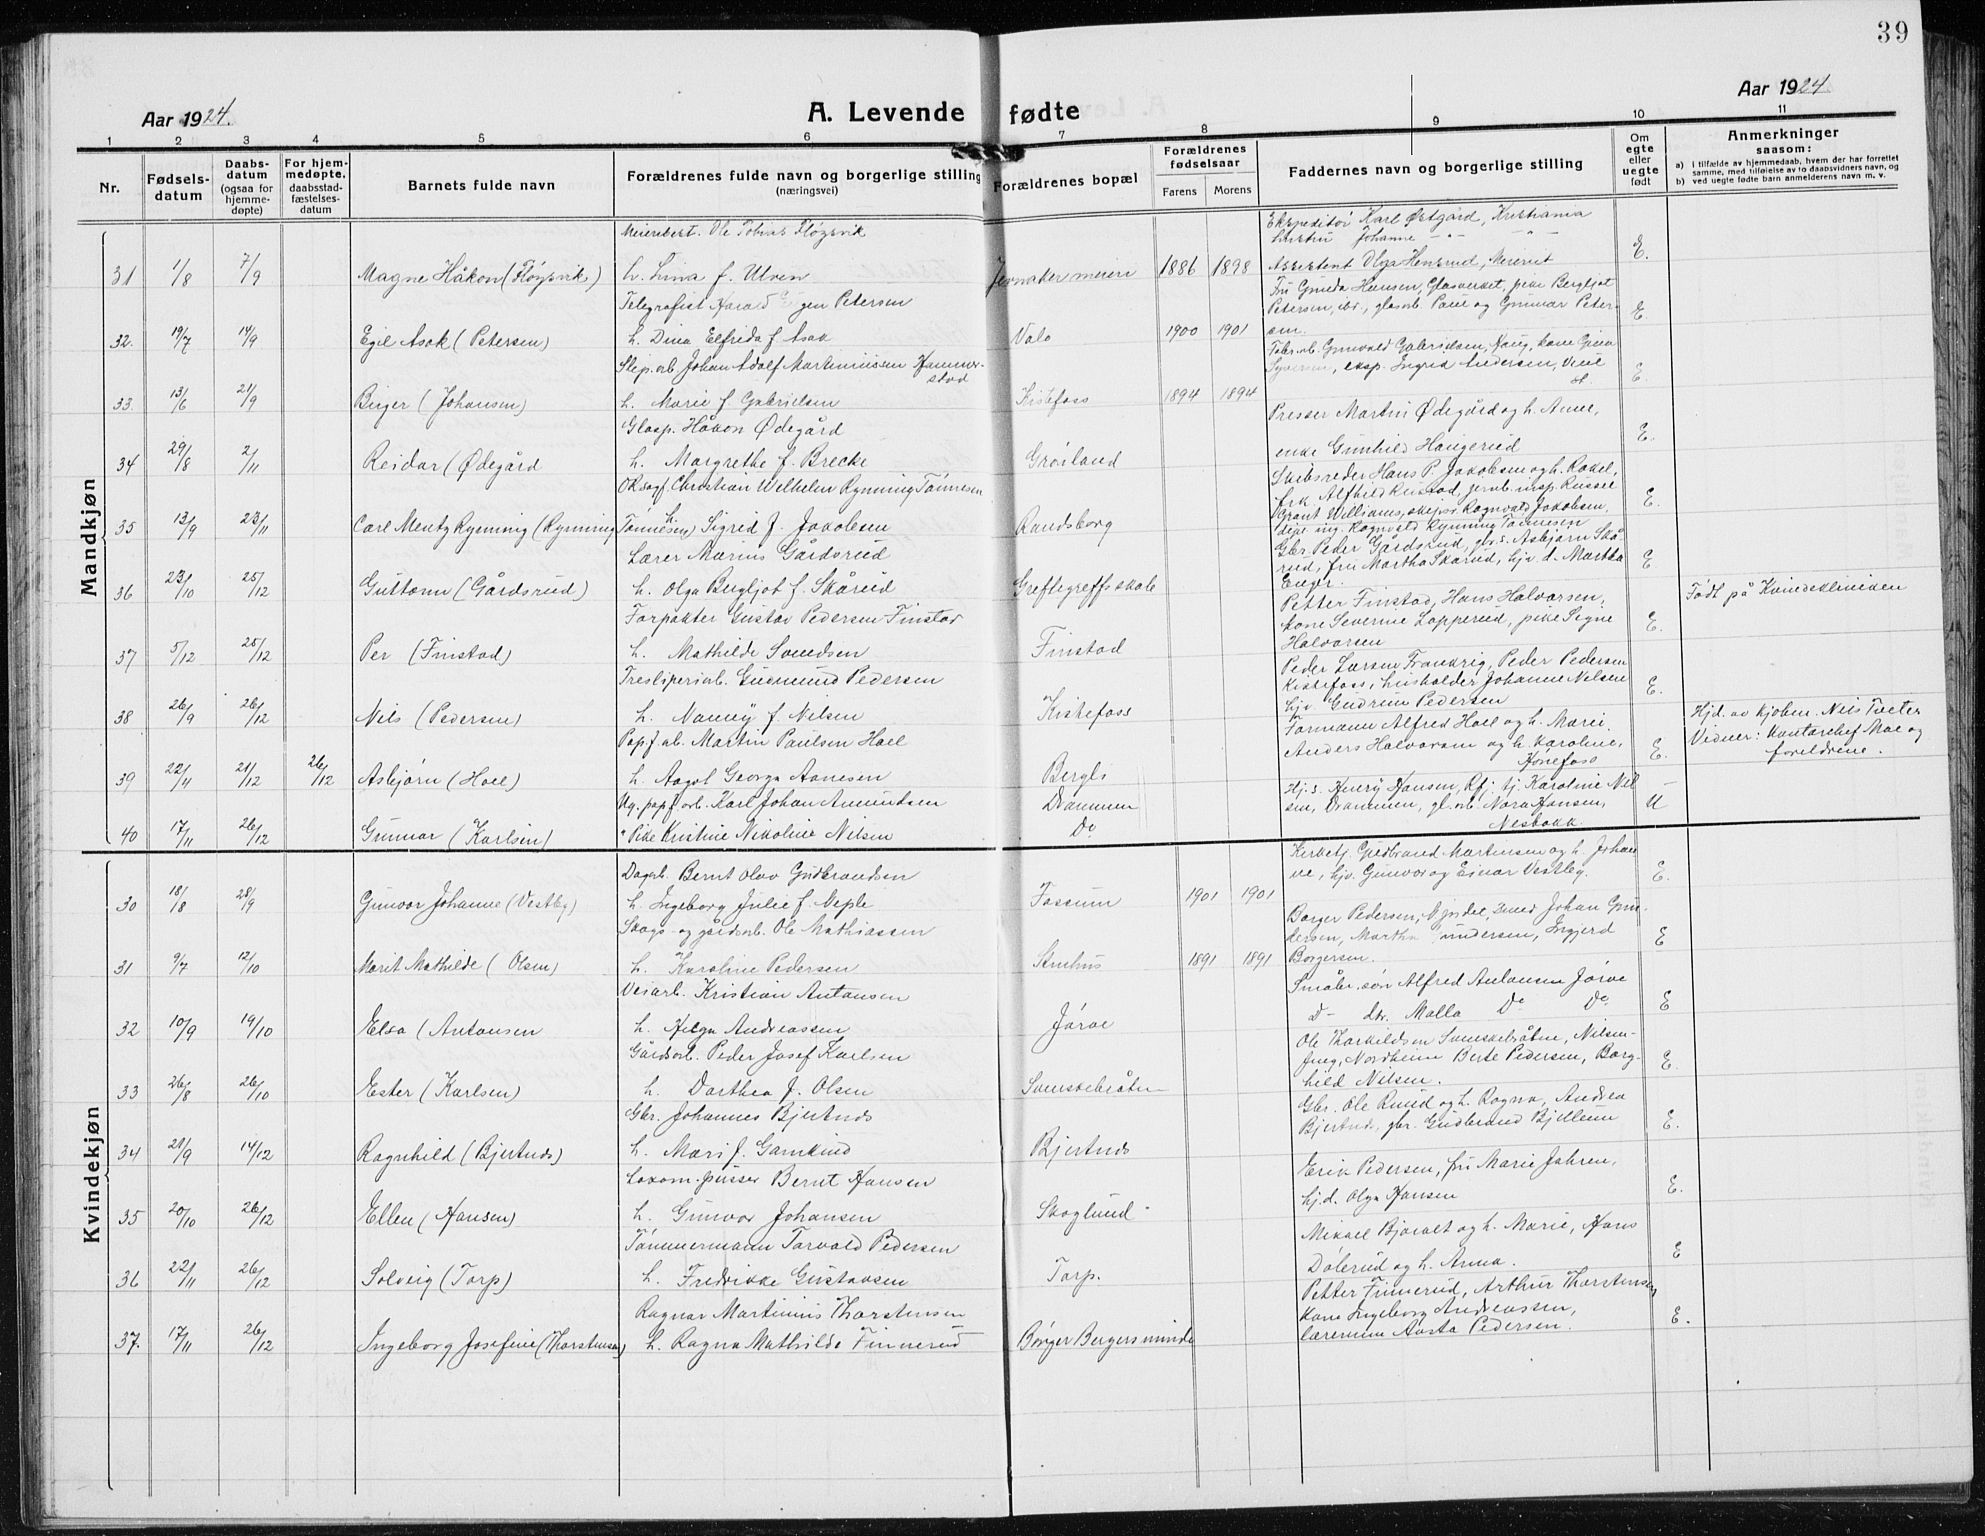 39
Aar 1924.
A. Levende fødte
Aar 1924.
1 2 3 4 5 6 7 8 9 10 11
Nr.
Fødsels-
datum
Daabs-
datum
(ogsaa for
hjemme-
døpte)
For hjem-
medøpte.
daabsstad-
fæstelses-
datum
Barnets fulde navn
Forældrenes fulde navn og borgerlige stilling
(næringsvei)
Forældrenes bopæl
Forældrenes
fødselsaar
Farens Morens
Faddernes navn og borgerlige stilling
Om
egte
eller
uegte
født
Anmerkninger
saasom:
a) I tilfælde av hjemmedaab, hvem der har forrettet
samme, med tilføielse av to daabsvidners navn, og
b) ved uegte fødte barn anmelderens navn m. v.
Mandkjøn
Meieribest. Ole Tobias Fløgsvik
Ekspeditør Karl Østgård, Kristiania
hustru Johanne -"- -"-
31 1/8 7/9 Magne Håkon (Fløgsvik) h. Lina f. Ulven Jevnaker meieri 1886 1898 Assistent Olga Hensrud, Meieriet E.
Telegrafist Harald Petersen
Fru Gunda Hansen, Glasverket, pike Bergljot
Petersen, ibd., glasarb. Paul og Gunnar Peter-
32. 19/7 14/9 Egil Asak (Petersen) h. Dina Elfrida f. Asak Valo 1900 1901 sen. E
Slip.arb. Johan Adolf Martiniussen Hammer-
stad
Fabr.arb. Gunvald Gabrielsen, Haug, kone Gina
Syversen, eksp. Ingrid Andersen,
33. 13/6 21/9 Birger (Johansen) h. Marie f. Gabrielsen Kistefoss 1894 1894 E.
Glasp. Håkon Ødegård
Presser Martin Ødegård og h. Anne,
enke Gunhild Haugerud
34 29/8 2/11 Reidar (Ødegård h. Margrethe f. Brecke Grøiland E.
O.R.sagf. Christian Wilhelm Rynning Tønnesen
Skibsreder Hans P. Jakobsen og h. Rakel,
frk Alfhild Rustad, jernb. insp. Russel
Grant Williams, skipsr Ragnvald Jakobsen,
35 13/9 23/11 Carl Mentz Rynning (Rynning Tønnesen) h. Sigrid f. Jakobsen Randsborg E.
ing. Ragnvald Rynning Tønnesen
Lærer Marius Gårdsrud
Gbr. Peder Gårdsrud, gbr.s. Asbjørn Skå-
rud, fru Martha Skårud, hjv. d. Martha
36 23/10 25/12 Guttorm (Gårdsrud) h. Olga Bergljot f. Skårud Greftegreffs skole Enger. E Født på Kvindekliniken
Forpakter Gustav Pedersen Finstad
Petter Finstad, Hans Halvorsen,
kone Severine Lopperud, pike Signe
37 5/12 25/12 Per (Finstad) h. Mathilde Svendsen Finstad Halvorsen E.
Tresliperiarb. Gudmund Pedersen
Peder Larsen Frankrig, Peder Pedersen
Kistefoss, husholder Johanne Nilsen
38 26/9 26/12 Nils (Pedersen) h. Nanny f. Nilsen Kistefoss hjv Gudrun Pedersen E.
Pap.f.arb. Martin Paulsen Hoel
Formann Alfred Hoel og h. Marie.
Anders Halvorsen og h. Karoline,
Hønefoss
39 22/11 21/12 26/12 Asbjørn (Hoel) h. Aagot Georga Aanesen Bergli E. Hjd. av kjøbm. Nils Tveter
Vidner: Kontorchef Moe og
foreldrene.
Ug. pap.f.arb. Karl Johan Amundsen Drammen
Hj.s. Henry Hansen, Rfj. tj. Karoline Nil-
sen, Drammen, gl.arb Nora Hansen,
Nesbakk.
40 17/11 26/12 Gunnar (Karlsen) " Pike Kristine Nikoline Nilsen Do U -
Kvindekjøn
Dagarb. Bernt Olav Gudbrandsen
Kirketj. Gudbrand Martinsen og h. Johan
ne, hjv. Gunvor og Einar Vestby.
30 18/8 28/9 Gunvor Johanne (Vestby) h. Ingeborg Julie f. Neple Fossum 1901 1901 E.
Skogs- og gårdsarb. Ole Mathiassen
Borger Pedersen, Mjørdel, Johan Gun-
dersen, Martha Gundersen, Ingjerd
31 9/7 12/10 Marit Mathilde (Olsen) h. Karoline Pedersen Stenhus 1891 1891 Borgersen. E
Veiarb. Kristian Antonsen
Småbr. søn Alfred Antonsen Jørve
D- dtr. Malla Do Do
32 10/9 19/10 Elsa (Antonsen h. Helga Andreassen Jørve E
Gårdsarb. Peder Josef Karlsen
Ole Thorkildsen Svenskebråtne, Nilsen-
Nordheim Berte Pedersen, Borg-
hild Nilsen.
33 26/8 26/10 Ester (Karlsen) h. Dorthea f. Olsen Svenskebråten E.
Gbr. Johannes Bjertnes
Gbr. Ole Ruud og h. Ragna, Andrea
Bjertnes, gbr. Gudbrand Bjellum
34 21/9 14/12 Ragnhild (Bjertnes) h. Mari f. Gamkind Bjertnes E.
Lokom.pusser Bernt Hansen
Erik Pedersen, fru Marie Jahren,
hj.d. Olga Hansen
35 20/10 26/12 Ellen (Hansen) h. Gunvor Johansen Skoglund E.
Tømmermann Torvald Pedersen
Mikael Bjørvalt og h. Marie, Hans
Dølerud og h. Anna.
36 22/11 26/12 Solveig (Torp) h. Fredrikke Gustavsen Torp. E
Ragnar Martinius Thorstensen
Petter Finnerud, Arthur Thorstensen
kone Ingeborg Andreassen,
lærerinne Aasta Pedersen.
37. 17/11 26/12 Ingeborg Josefine (Thorstensen) h. Ragna Mathilde Finnerud Børger Bergersminde E.